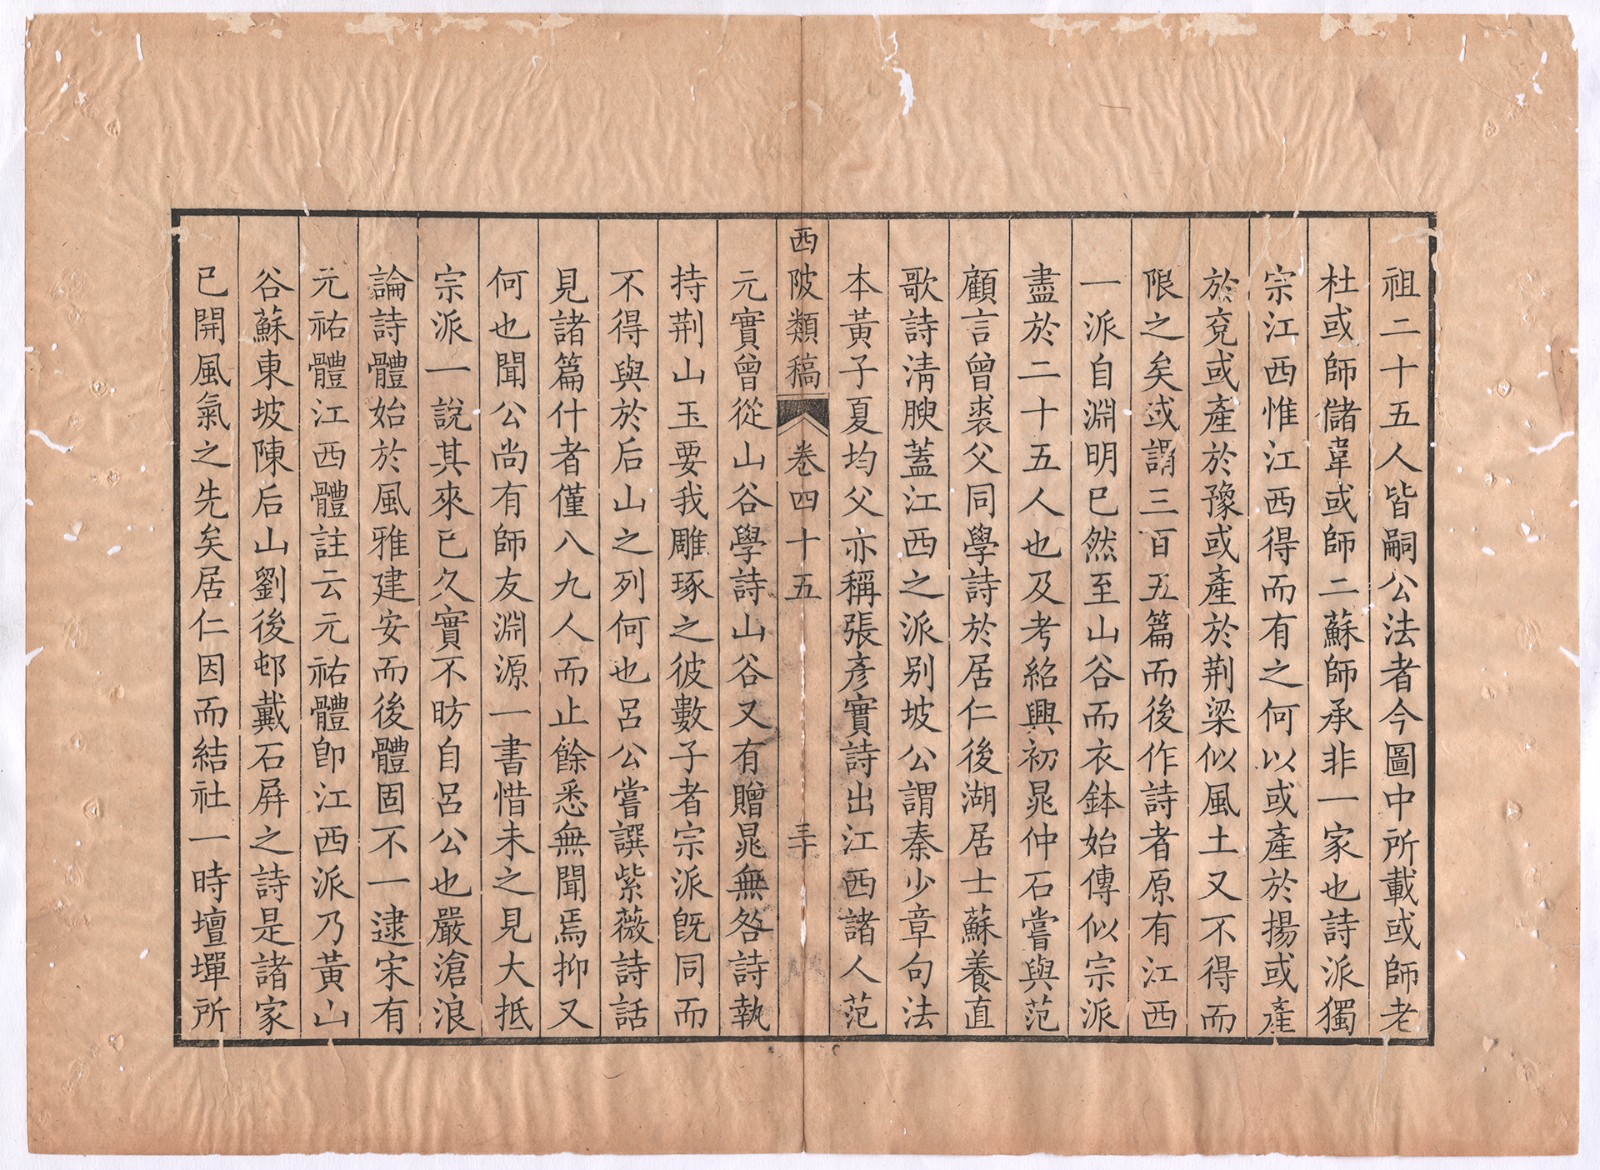 祖二十五人皆嗣公法者今圖中所載或師老
杜或師儲韋或師二蘇師承非一家也詩派獨
宗江西惟江西得而有之何以或產於揚或產
於兗或產於豫或產於荆梁似風土又不得而
限之矣或謂三百五篇而後作詩者原有江西
一派自淵明已然至山谷而衣鉢始傳似宗派
盡於二十五人也及考紹興初晁仲石嘗與范
顧言曾裘父同學詩於居仁後湖居士蘇養直
歌詩淸腴蓋江西之派别坡公謂秦少章句法
本黃子夏均父亦稱張彥實詩出江西諸人范
西陂類稿 卷四十五 三十
元實曾從山谷學詩山谷又有贈晁無咎詩執
持荆山玉要我雕琢之彼數子者宗派旣同而
不得與於后山之列何也呂公嘗譔紫薇詩話
見諸篇什者僅八九人而止餘悉無聞焉抑又
何也聞公尚有師友淵源一書惜未之見大抵
宗派一說其來已久實不昉自呂公也嚴滄浪
論詩體始於風雅建安而後體固不一逮宋有
元祐體江西體註云元祐體卽江西派乃黃山
谷蘇東坡陳后山劉後邨戴石屛之詩是諸家
已開風氣之先矣居仁因而結社一時壇墠所